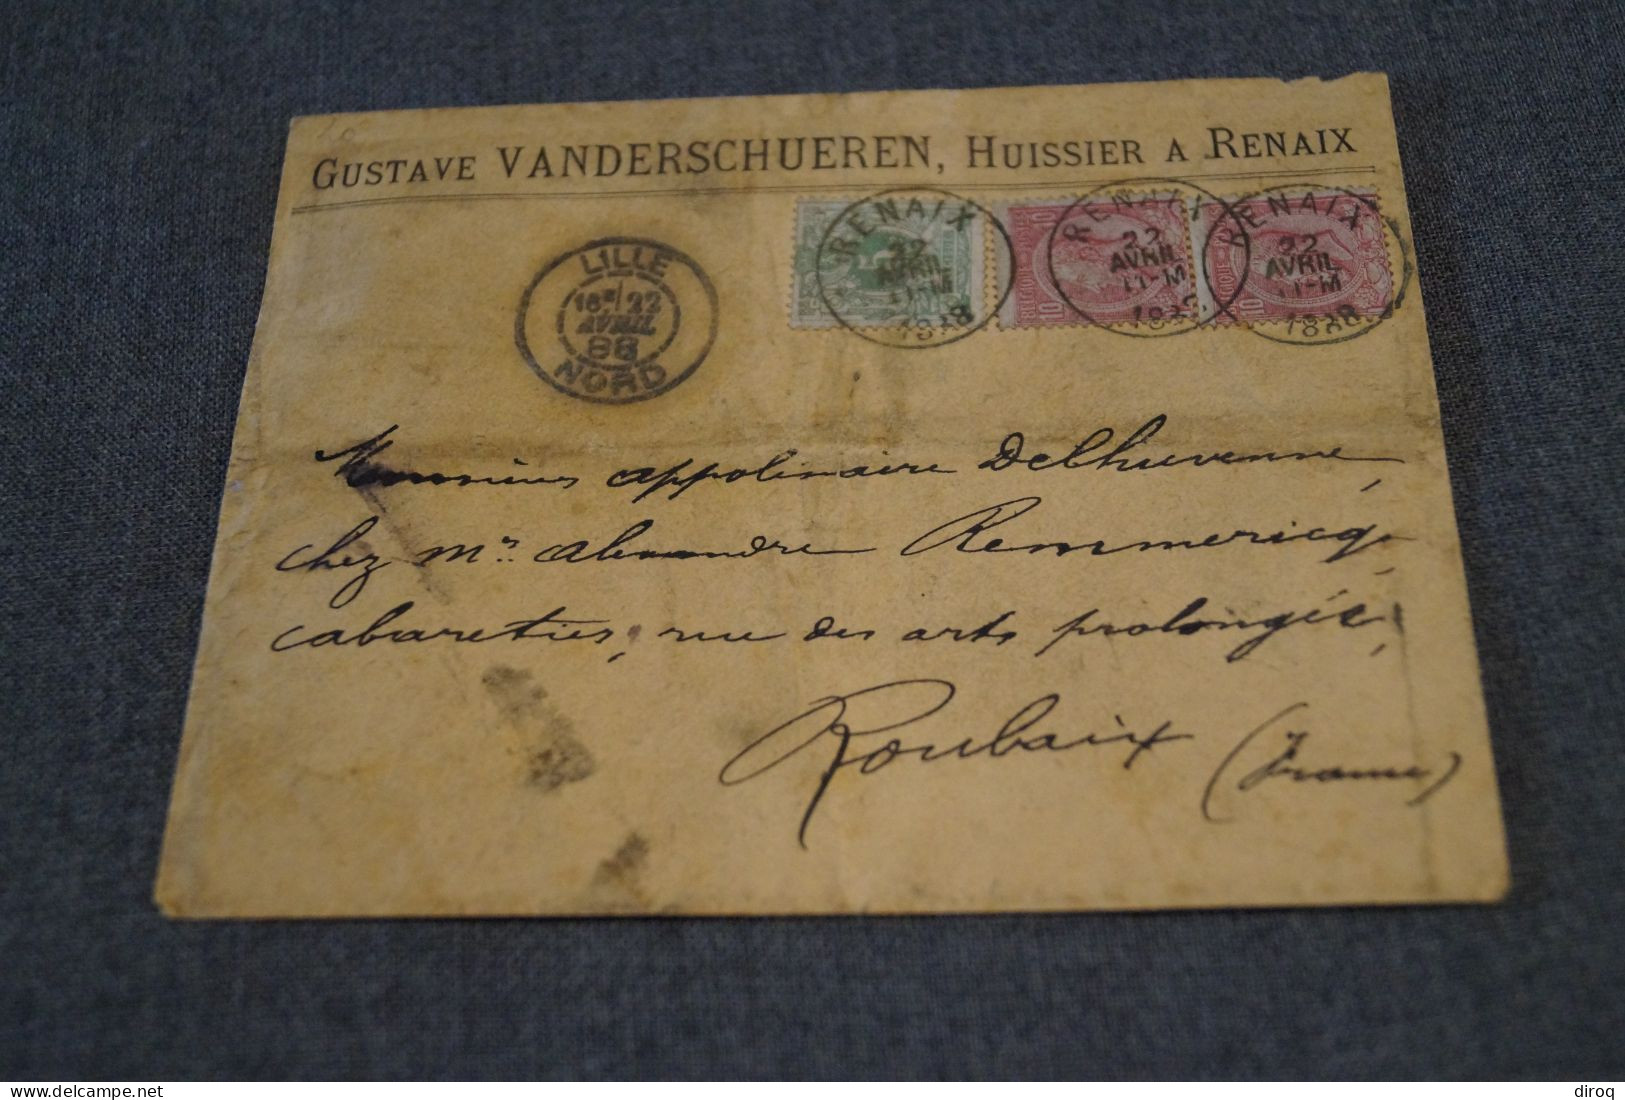 GUSTAVE VANDERSCHUEREN, HUISSIER A RENAIX
RENAIX
22
AVRIL
11-M
1888
RENAIX
22
AVRIL
11-M
188
RENAIX
22
AVRIL
11-M
1888
5
10
10
LILLE
22
AVRIL
88
NORD
Monsieur appolinaire Delhuvenne,
chez Mr. alexandre Remmericq,
cabaretier, rue des arts prolongée,
Roubaix (France)
diroq